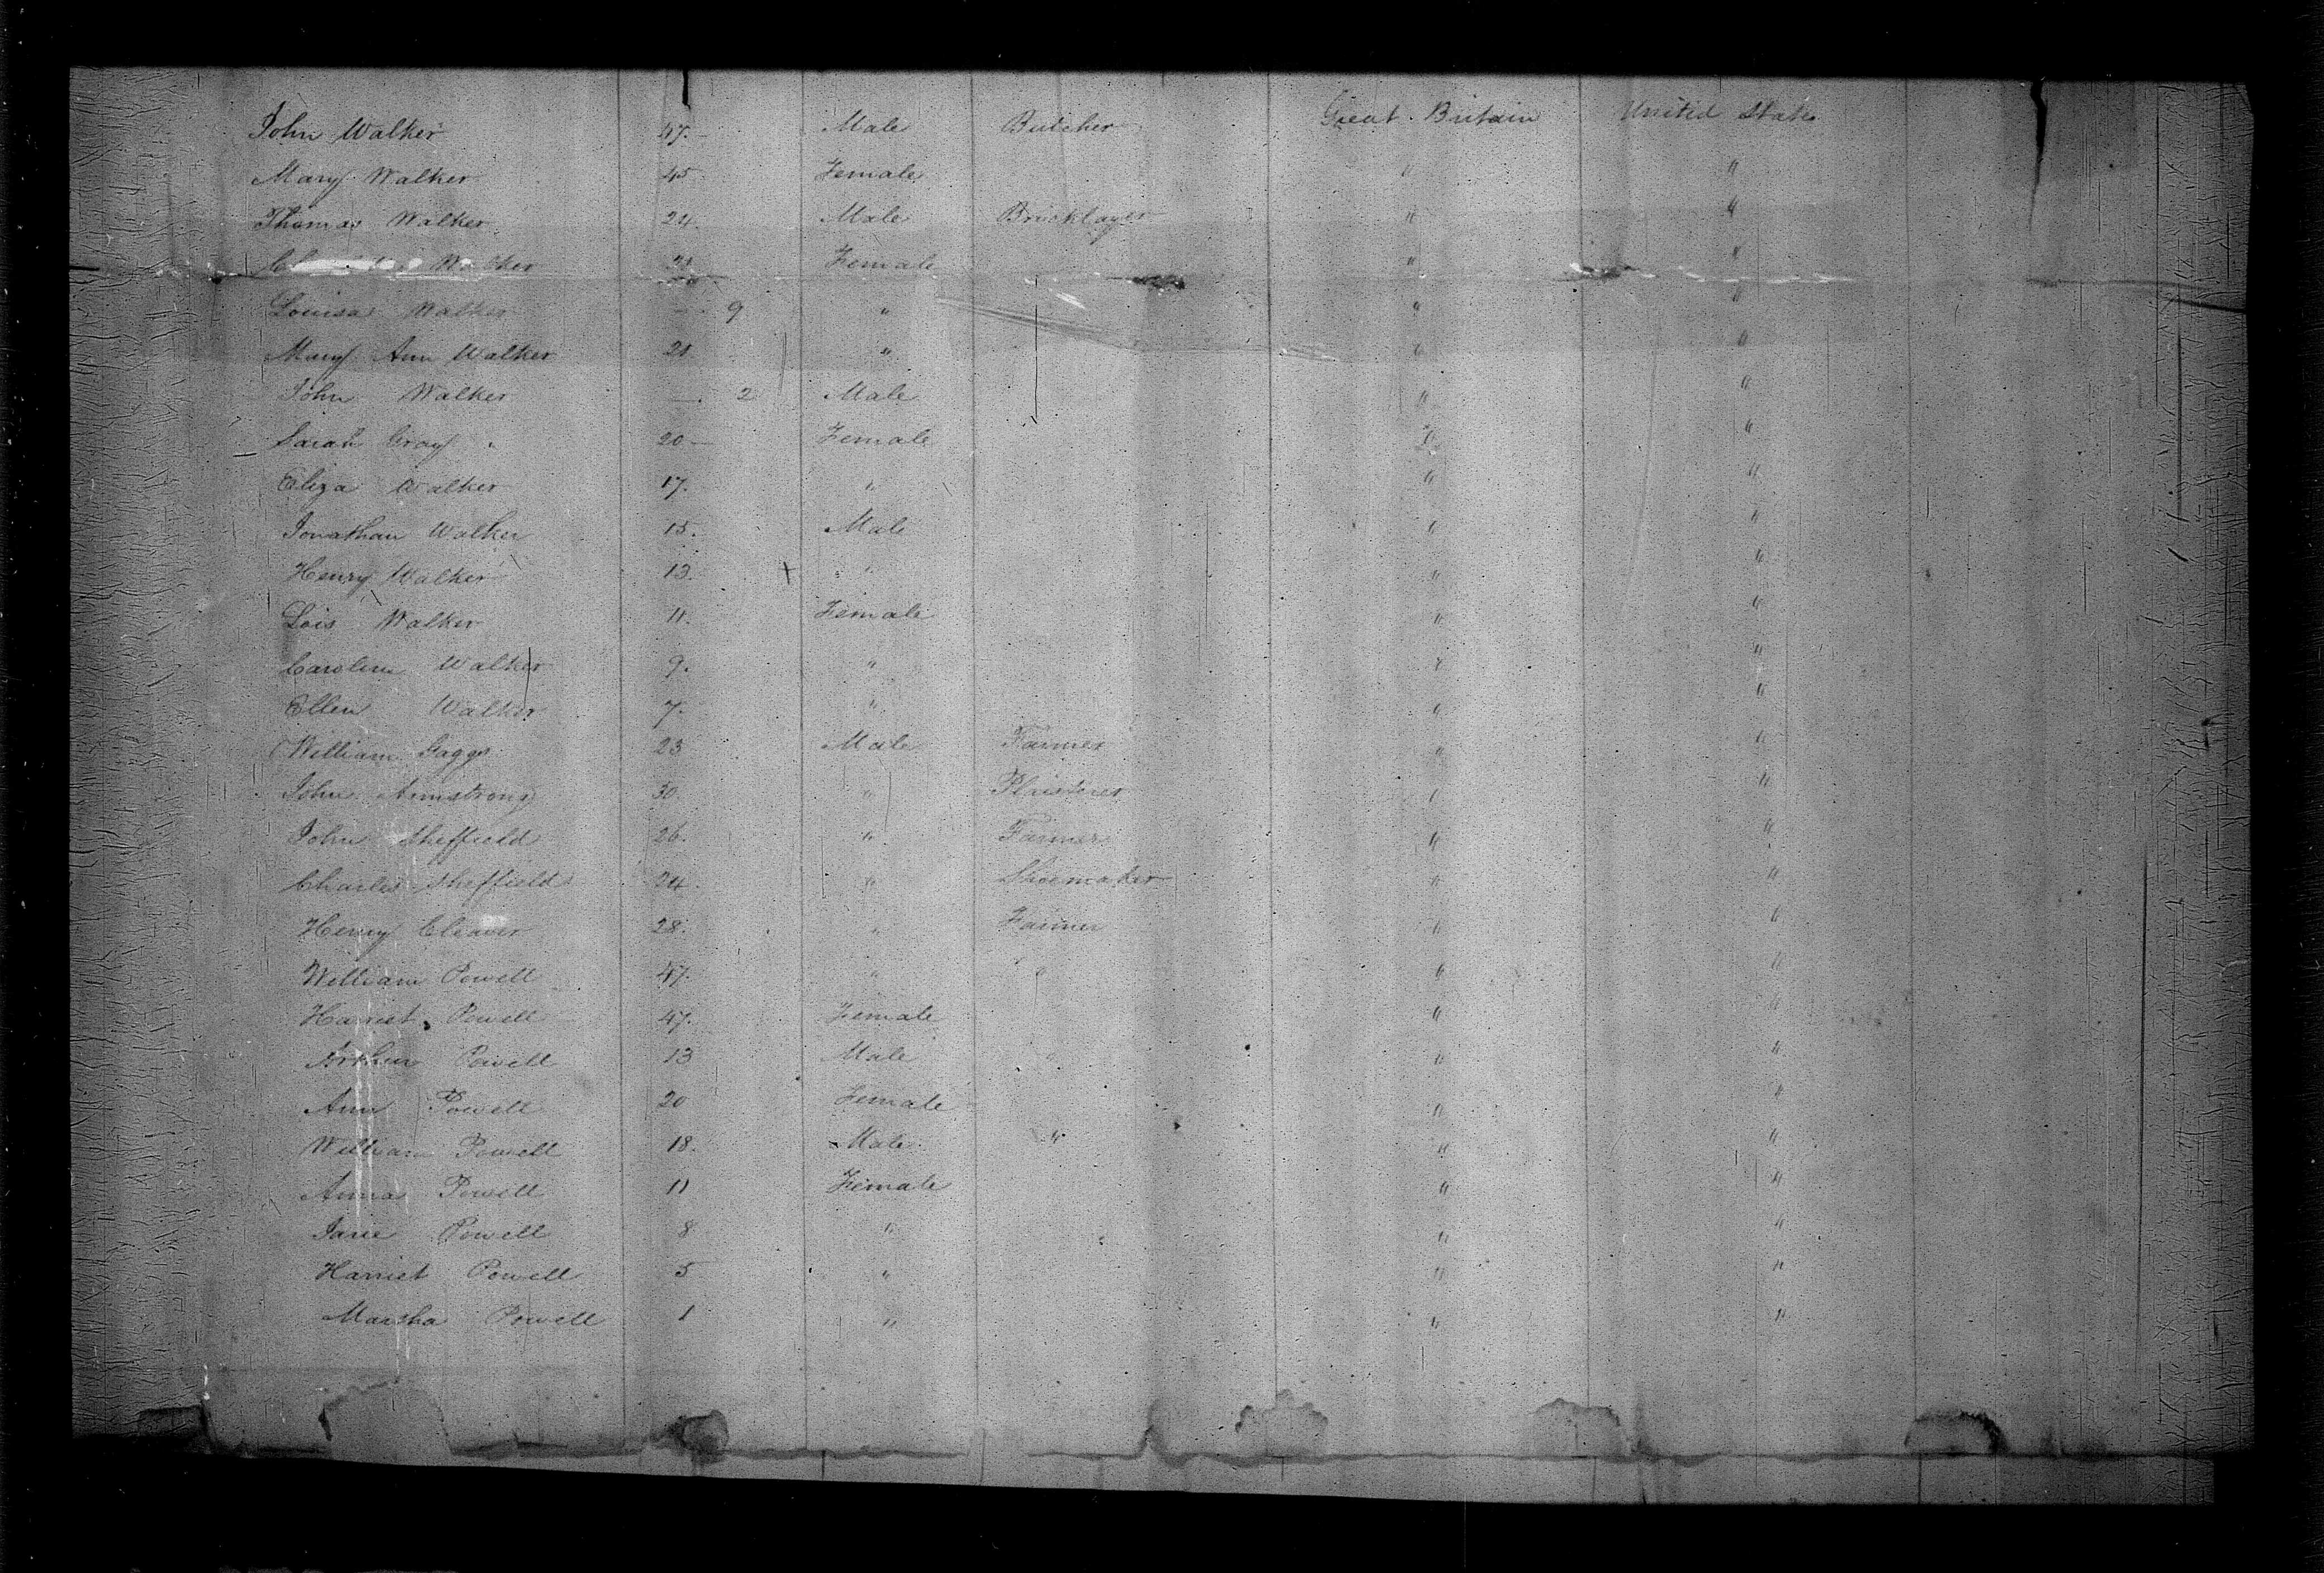 John Walker 47. Male Butcher Great Britain United States
Mary Walker 45 Female " "
Thomas Walker 24. Male Bricklayer " "
Walker Female " "
Louisa Walker — 9 " " "
Mary Ann Walker 21 " " "
John Walker — 2 Male " "
Sarah Gray 20 — Female " "
Eliza Walker 17. " " "
Jonathan Walker 15. Male " "
Henry Walker 13. " " "
Lois Walker 11. Female " "
Caroline Walker 9. " " "
Ellen Walker 7. " " "
William 23 Male Farmer " "
John Armstrong 30. " Plasterer " "
John Sheffield 26. " Farmer " "
Charles Sheffield 24. " Shoemaker " "
Henry Cleaver 28. " Farmer " "
William Powell 47. " " " "
Harriet Powell 47. Female " "
Arthur Powell 13 Male " " "
Ann Powell 20 Female " "
William Powell 18. Male " " "
Anna Powell 11 Female " "
Jane Powell 8 " " "
Harriet Powell 5 " " "
Martha Powell 1 " " "